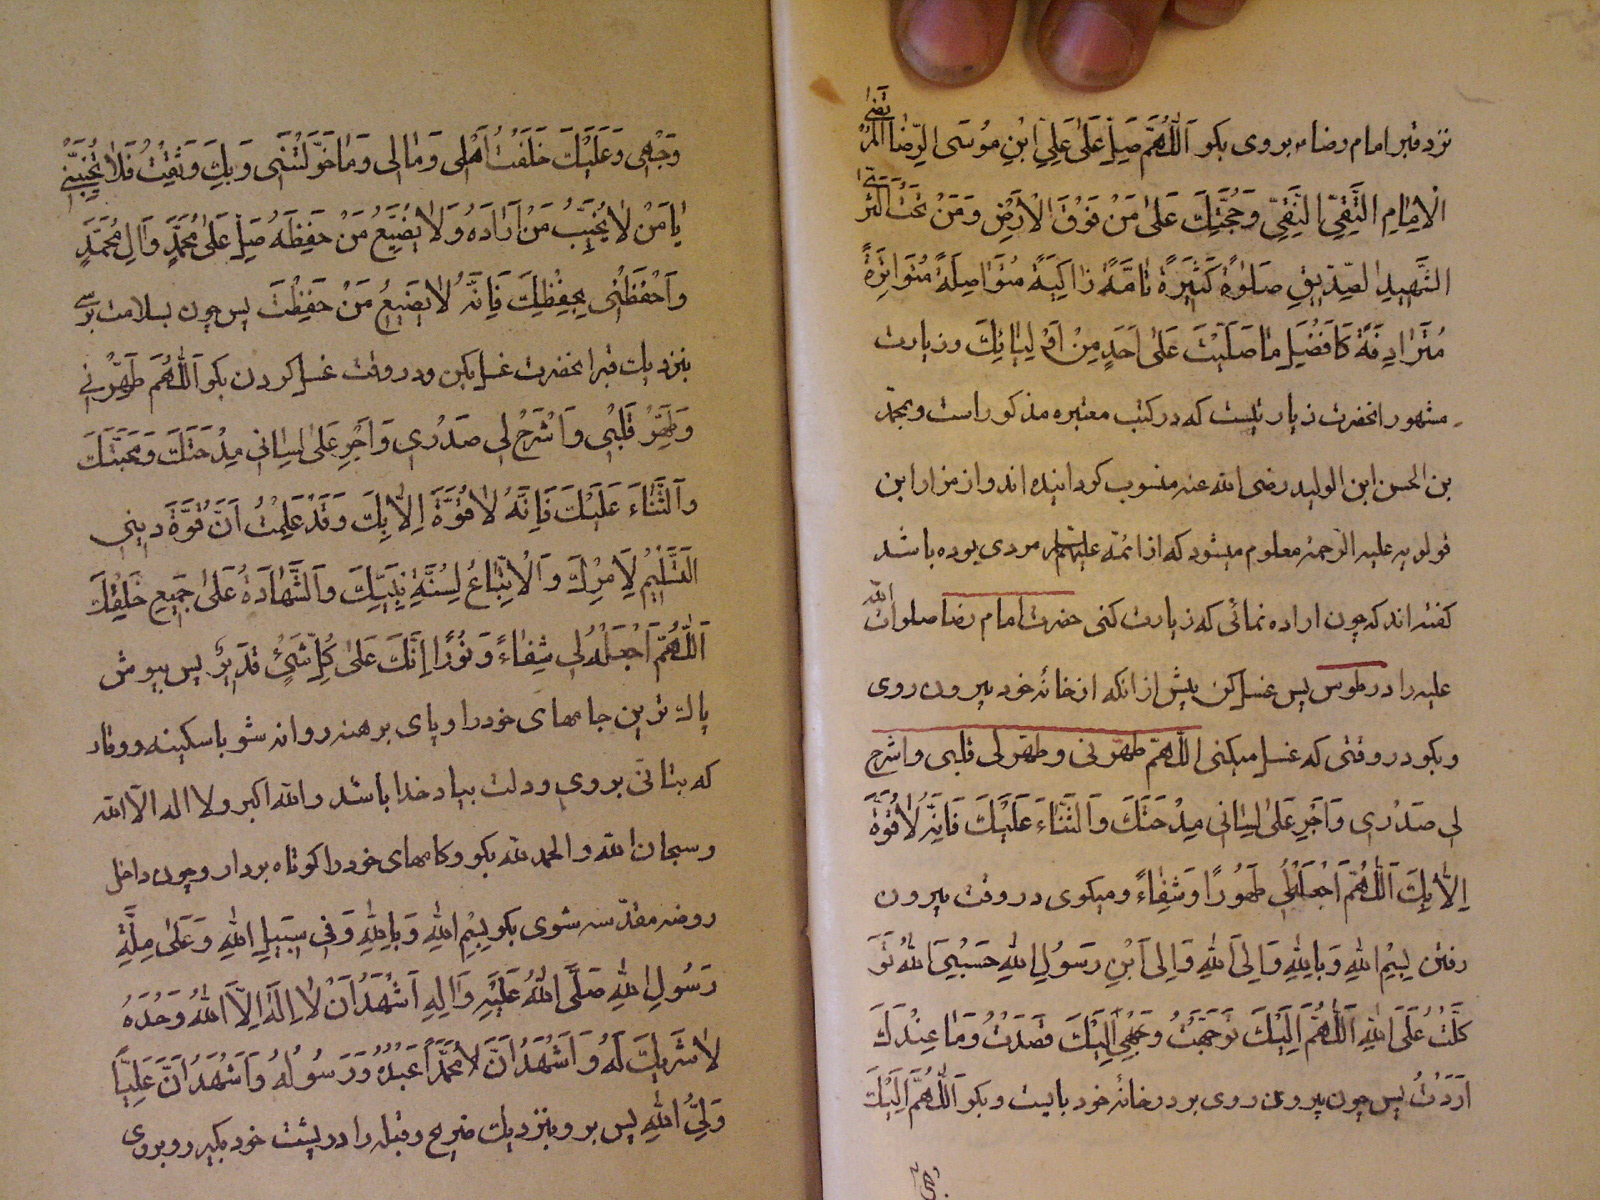 نزد قبر امام رضا ع بروی بکو اَللّٰهُمَّ صَلِّ عَلیٰ عَلِیِّ ابْنِ مُوسَی الرِّضَا الْمُرْتَضیٰ
الْاِمٰامِ التَّقِیِّ النَّقِیِّ وَحُجَّتِكَ عَلیٰ مَنْ فَوْقَ الْاَرْضِ وَمَنْ تَحْتَ الثَّریٰ
الشَّهِیدِ الصِّدّیقِ صَلوٰةً کَثیرَةً تٰامَّةً زٰاکِیَةً مُتَوٰاصِلَةً مُتَوٰاتِرَةً
مُتَرٰادِفَةً کَاَفْضَلِ مٰا صَلَّیْتَ عَلیٰ اَحَدٍ مِنْ اَوْلِیٰائِكَ وزیارت
مشهور انحضرت زیارتیست که در کتب معتبره مذکور است وبمحمّد
بن الحسن ابن الولید رضی الله عنه منسوب کردانیده اند واز مزار ابن
قولویه علیه الرّحمة معلوم میشود که از ائمّه علیهم السلام مروی بوده باشد
کفته اند که چون اراده نمائی که زیارت کنی حضرت امام رضا صلوات الله
علیه را در طوس پس غسل کن پیش از انکه از خانهٔ خود بیرون روی
وبکو در وقتی که غسل میکنی اللّهمّ طهّرنی وطهّر لی قلبی واشرح
لی صَدْری وَاَجْرِ عَلیٰ لِسٰانی مِدْحَتَكَ وَالثَّنٰاءَ عَلَیْكَ فَاِنَّهُ لٰا قُوَّةَ
اِلّٰا بِكَ اَللّٰهُمَّ اجْعَلْهُ لی طَهُورًا وَشِفٰاءً ومیکوی در وقت بیرون
رفتن بِسْمِ اللهِ وَبِاللهِ وَاِلَی اللهِ وَاِلَی ابْنِ رَسُولِ اللهِ حَسْبِیَ اللهُ تَوَ
کَّلْتُ عَلَی اللهِ اَللّٰهُمَّ اِلَیْكَ تَوَجَّهْتُ وَاِلَیْكَ قَصَدْتُ وَمٰا عِنْدَكَ
اَرَدْتُ پس چون بیرون روی بر در خانهٔ خود بایست وبکو اَللّٰهُمَّ اِلَیْكَ
وَجْهی وَعَلَیْكَ خَلَّفْتُ اَهْلی وَمٰالی وَمٰا خَوَّلْتَنی وَبِكَ وَثِقْتُ فَلٰا تُخَیِّبْنی
یٰا مَنْ لٰا یُخَیِّبُ مَنْ اَرٰادَهُ وَلٰا یُضَیِّعُ مَنْ حَفِظَهُ صَلِّ عَلیٰ مُحَمَّدٍ وَاٰلِ مُحَمَّدٍ
وَاحْفَظْنی بِحِفْظِكَ فَاِنَّهُ لٰا یَضیعُ مَنْ حَفِظْتَ پس چون بسلامت برسی
بنزدیك قبر انحضرت غسل بکن ودر وقت غسل کردن بکو اَللّٰهُمَّ طَهِّرْنی
وَطَهِّرْ قَلْبی وَاشْرَحْ لی صَدْری وَاَجْرِ عَلیٰ لِسٰانی مِدْحَتَكَ وَمَحَبَّتَكَ
وَالثَّنٰاءَ عَلَیْكَ فَاِنَّهُ لٰا قُوَّةَ اِلّٰا بِكَ وَقَدْ عَلِمْتُ اَنَّ قُوَّةَ دینی
التَّسْلیمُ لِاَمْرِكَ وَالْاِتِّبٰاعُ لِسُنَّةِ نَبِیِّكَ وَالشَّهٰادَةُ عَلیٰ جَمیعِ خَلْقِكَ
اَللّٰهُمَّ اجْعَلْهُ لی شِفٰاءً وَنُورًا اِنَّكَ عَلیٰ کُلِّ شَیْءٍ قَدیرٌ پس بپوش
پاك ترین جامهای خود را وپای برهنه روانه شو با سکینه ووقار
که بتانّی بروی ودلت بیاد خدا باشد والله اکبر ولا اله الّا الله
وسبحان الله والحمد لله بکو وکامهای خود را کوتاه بردار وچون داخل
روضه مقدّسه شوی بکو بِسْمِ اللهِ وَبِاللهِ وَفی سَبیلِ اللهِ وَعَلیٰ مِلَّةِ
رَسُولِ اللهِ صَلَّی اللهُ عَلَیْهِ وَاٰلِهِ اَشْهَدُ اَنْ لٰا اِلٰهَ اِلَّا اللهُ وَحْدَهُ
لٰا شَریكَ لَهُ وَاَشْهَدُ اَنَّ مُحَمَّدًا عَبْدُهُ وَرَسُولُهُ وَاَشْهَدُ اَنَّ عَلِیًّا
وَلِیُّ اللهِ پس برو بنزدیك ضریح وقبله را در پشت خود بکیر وروبروی